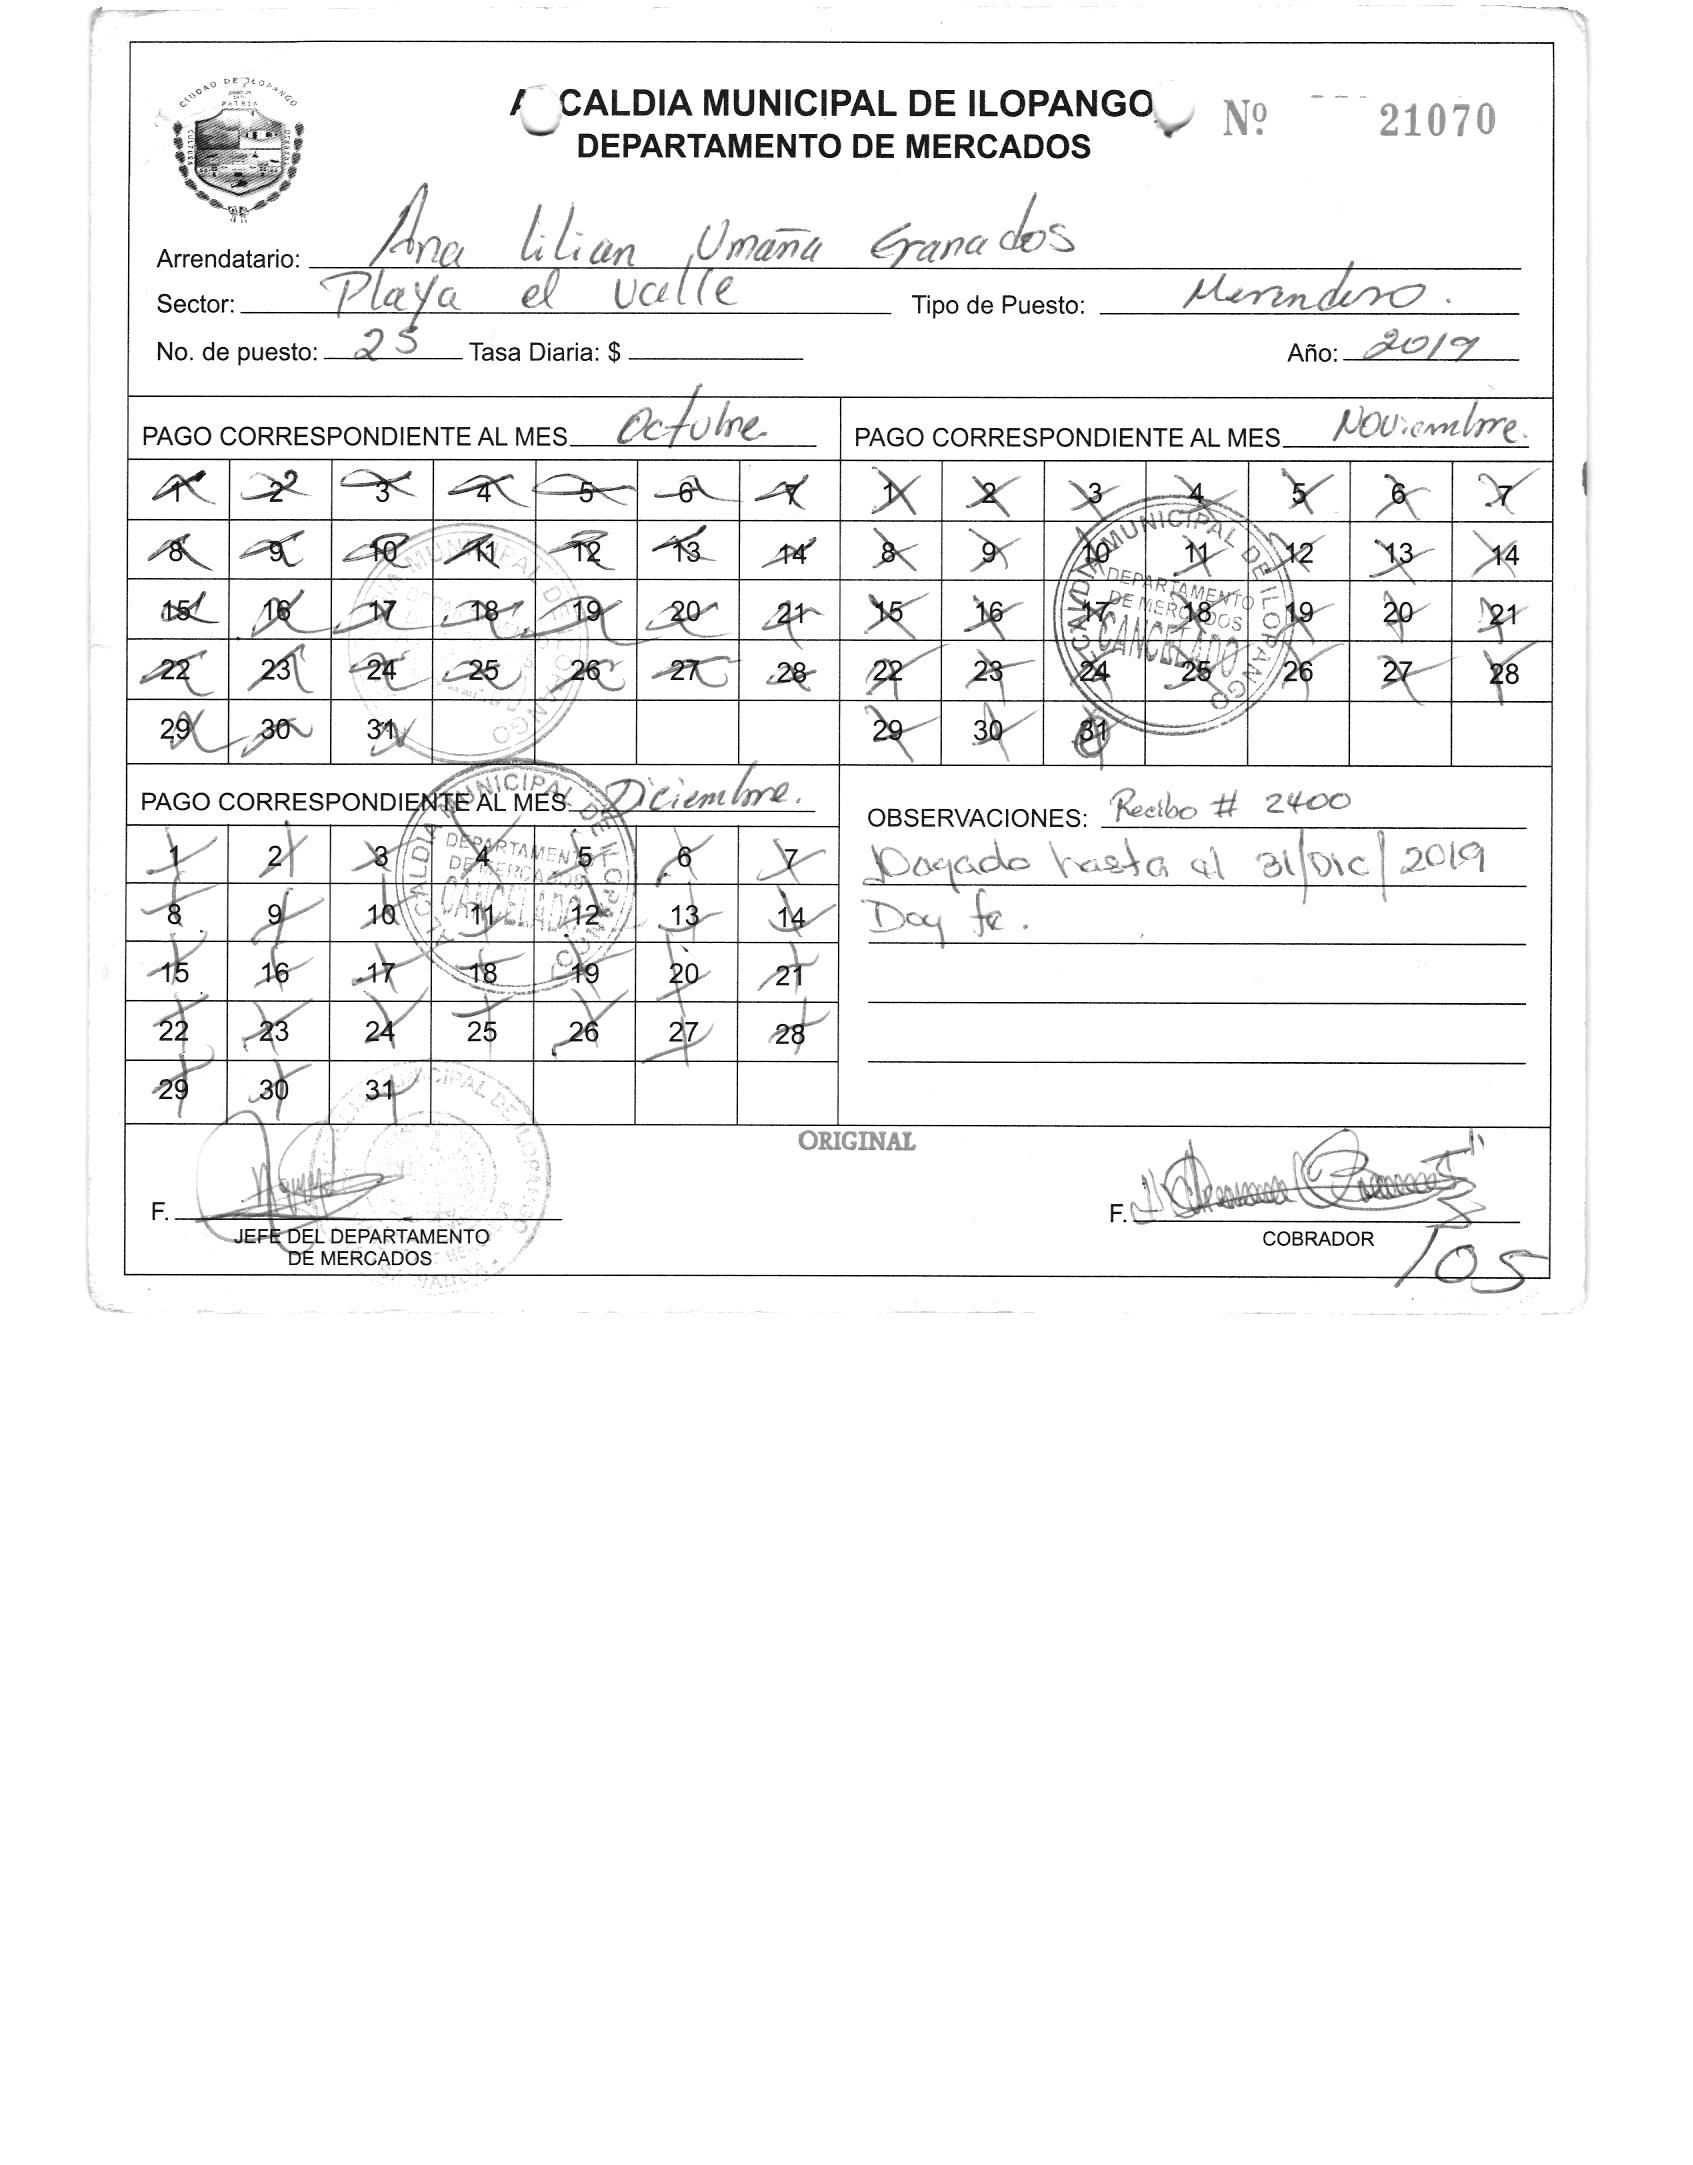 CIUDAD DE ILOPANGO
ALCALDIA MUNICIPAL DE ILOPANGO
Nº 21070
DEPARTAMENTO DE MERCADOS
Arrendatario: Ana Lilian Umaña Granados
Sector: Playa el Valle Tipo de Puesto: Merendero.
No. de puesto: 25 Tasa Diaria: $ Año: 2019
PAGO CORRESPONDIENTE AL MES Octubre
1 2 3 4 5 6 7
8 9 10 11 12 13 14
15 16 17 18 19 20 21
22 23 24 25 26 27 28
29 30 31
PAGO CORRESPONDIENTE AL MES Noviembre.
1 2 3 4 5 6 7
8 9 10 11 12 13 14
15 16 17 18 19 20 21
22 23 24 25 26 27 28
29 30 31
ALCALDIA MUNICIPAL DE ILOPANGO
DEPARTAMENTO
DE MERCADOS
CANCELADO
PAGO CORRESPONDIENTE AL MES Diciembre.
1 2 3 4 5 6 7
8 9 10 11 12 13 14
15 16 17 18 19 20 21
22 23 24 25 26 27 28
29 30 31
ALCALDIA MUNICIPAL DE ILOPANGO
DEPARTAMENTO
DE MERCADOS
CANCELADO
OBSERVACIONES: Recibo # 2400
Pagado hasta el 31/Dic/2019
Doy fe.
ORIGINAL
F.
JEFE DEL DEPARTAMENTO
DE MERCADOS
F.
COBRADOR
105